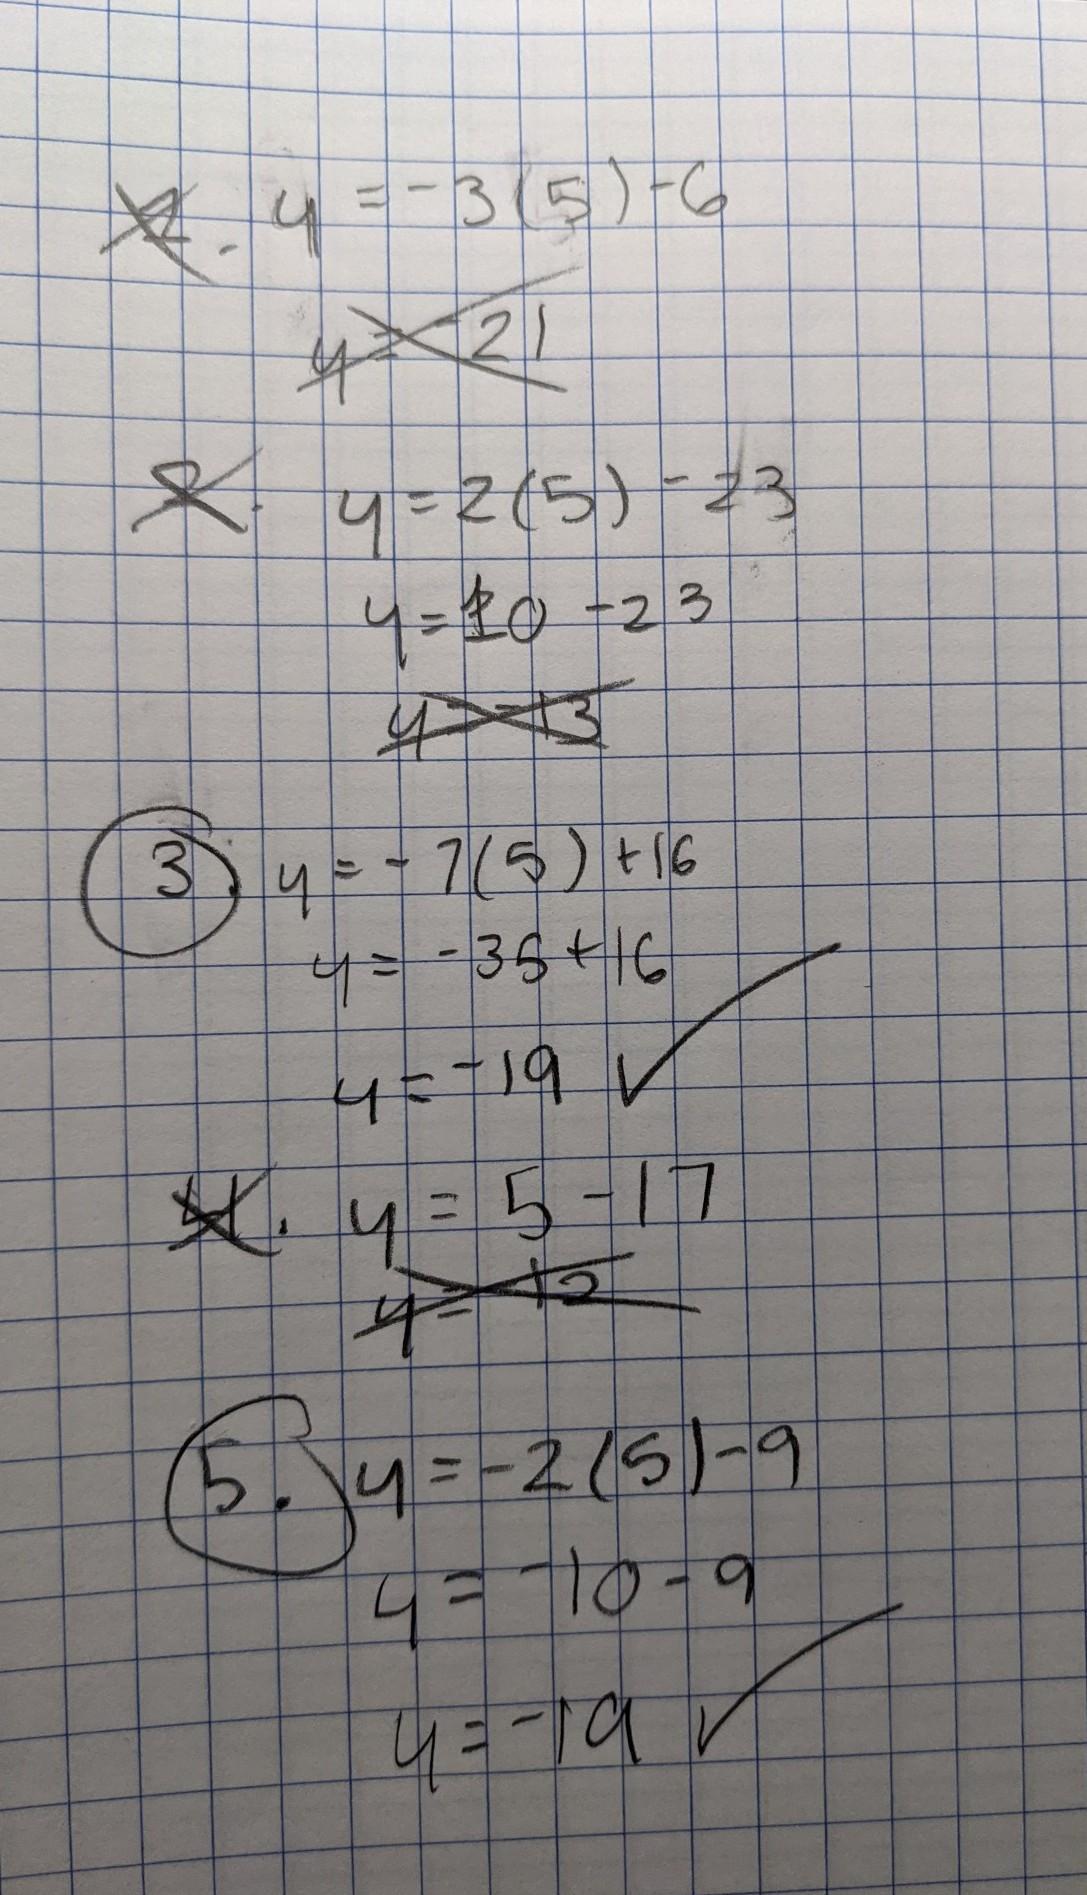 1. y = -3(5) -6
y = -21
2. y = 2(5) -23
y = 10 -23
y = -13
3. y = -7(5) +16
y = -35 +16
y = -19 ✓
4. y = 5 -17
y = -12
5. y = -2(5) -9
y = -10 -9
y = -19 ✓